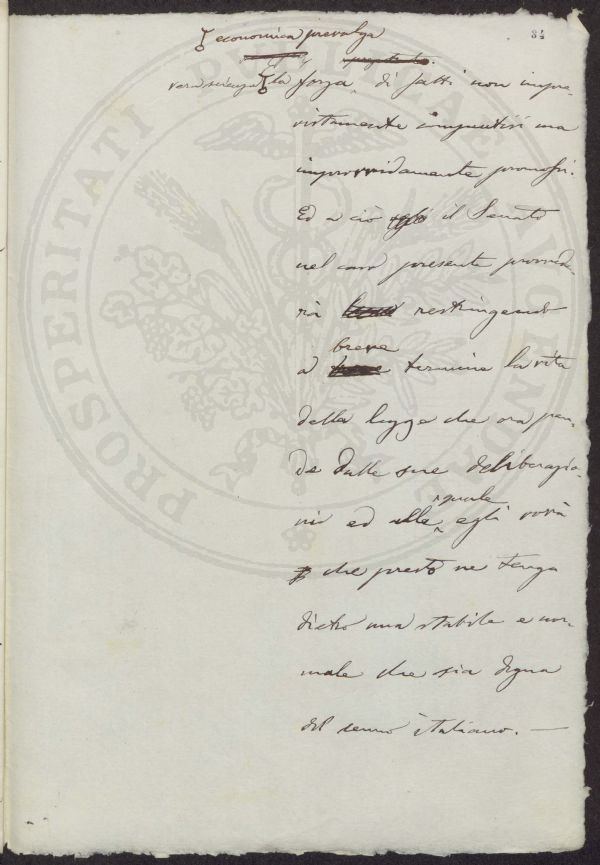 economica prevalga
34
vera scienza la forza di fatti non impre-
vistamente compiutisi ma
improvvidamente promossi.
Ed a ciò il Senato
nel caso presente provvede-
rà restringendo
breve
ad termine la vita
della legge che ora pen-
de dalle sue deliberazio-
ni ed alla quale egli vorrà
che presto ne tenga
dietro una stabile e nor-
male che sia degna
del senno italiano. —
PROSPERITATI PUBLICAE AUGENDAE